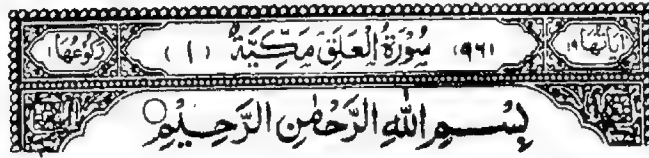 اٰيَاتُهَا ١٩ (٩٦) سُوْرَةُ الْعَلَقِ مَكِّيَّةٌ (١) رُكُوْعُهَا ١
بِسْمِ اللّٰهِ الرَّحْمٰنِ الرَّحِيْمِ